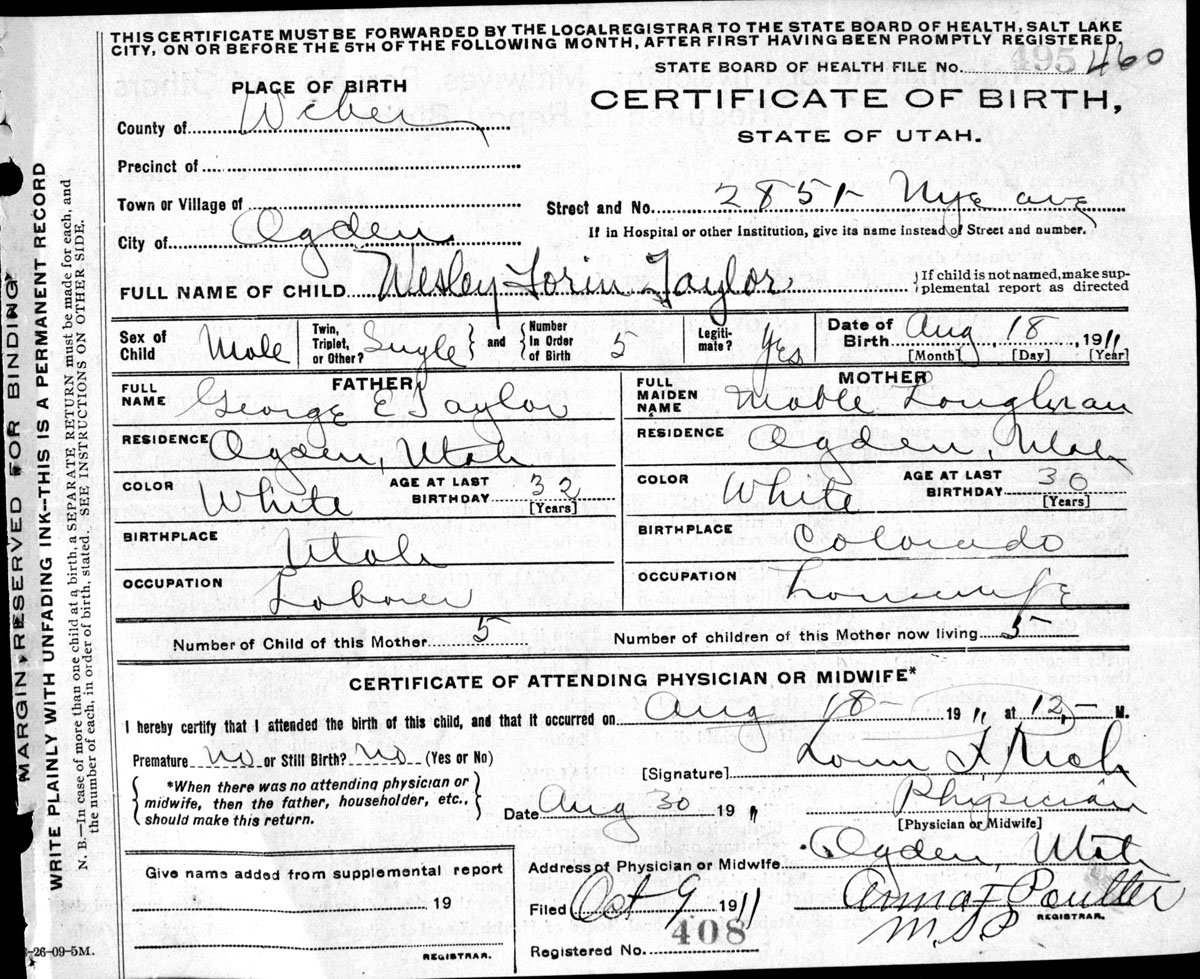 THIS CERTIFICATE MUST BE FORWARDED BY THE LOCAL REGISTRAR TO THE STATE BOARD OF HEALTH, SALT LAKE
CITY, ON OR BEFORE THE 5TH OF THE FOLLOWING MONTH, AFTER FIRST HAVING BEEN PROMPTLY REGISTERED.
STATE BOARD OF HEALTH FILE No. 495 460
PLACE OF BIRTH
CERTIFICATE OF BIRTH,
STATE OF UTAH.
County of Weber
Precinct of
Town or Village of
Street and No. 2851 Nye ave
City of Ogden
If in Hospital or other Institution, give its name instead of Street and number.
FULL NAME OF CHILD Wesley Lorin Taylor
{If child is not named, make sup-
plemental report as directed
Sex of Child Male
Twin, Triplet, or Other? Single } and { Number In Order of Birth 5
Legiti-mate? Yes
Date of Birth Aug 18, 1911
[Month] [Day] [Year]
FATHER
MOTHER
FULL NAME George E Taylor
FULL MAIDEN NAME Mable
RESIDENCE Ogden, Utah
RESIDENCE Ogden, Utah
COLOR White AGE AT LAST BIRTHDAY 32 [Years]
COLOR White AGE AT LAST BIRTHDAY 30 [Years]
BIRTHPLACE Utah
BIRTHPLACE Colorado
OCCUPATION Laborer
OCCUPATION Housewife
Number of Child of this Mother 5
Number of children of this Mother now living 5
CERTIFICATE OF ATTENDING PHYSICIAN OR MIDWIFE*
I hereby certify that I attended the birth of this child, and that it occurred on Aug 18 - 1911 at 12 M.
Premature No or Still Birth? No (Yes or No)
[Signature]
{ *When there was no attending physician or
midwife, then the father, householder, etc.,
should make this return. }
Date Aug 30 1911
Physician
[Physician or Midwife]
Give name added from supplemental report
19
REGISTRAR.
Address of Physician or Midwife Ogden, Utah
Filed Oct 9 1911
Anna F Poulter
REGISTRAR.
M.S.P
Registered No. 408
MARGIN RESERVED FOR BINDING
WRITE PLAINLY WITH UNFADING INK—THIS IS A PERMANENT RECORD
N. B.—In case of more than one child at a birth, a SEPARATE RETURN must be made for each, and
the number of each, in order of birth, stated. SEE INSTRUCTIONS ON OTHER SIDE.
-26-09-5M.